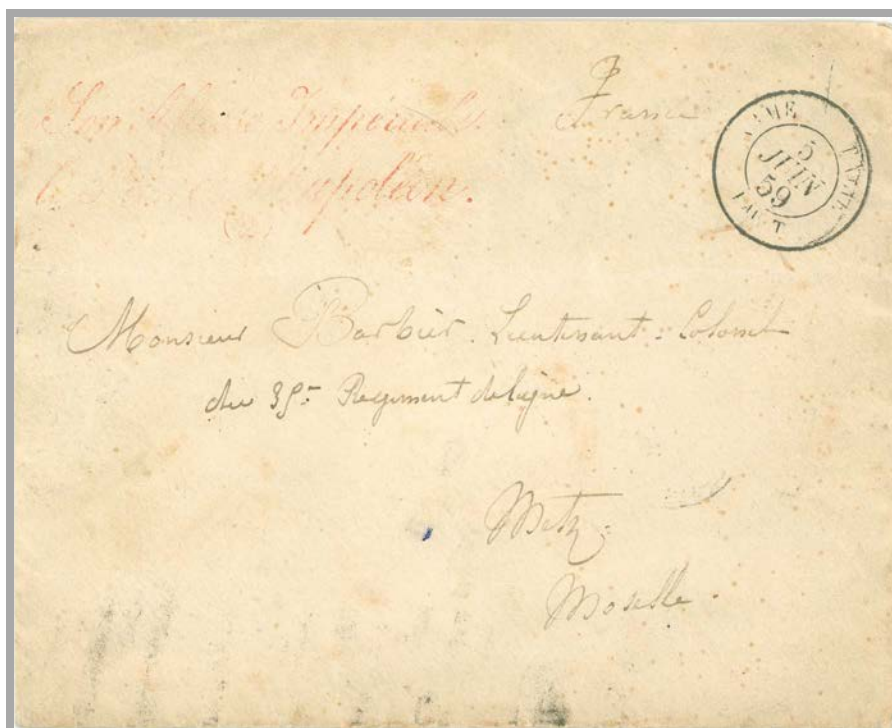 Son Altesse Impériale
Napoléon.
France
5
JUIN
59
Monsieur Barbier. Lieutenant: Colonel
du 35e Regiment de ligne.
Metz
Moselle.